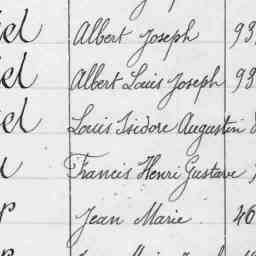 Albert Joseph 93
Albert Louis Joseph 93
Louis Isidore Augustin
Francis Henri Gustave
Jean Marie 46